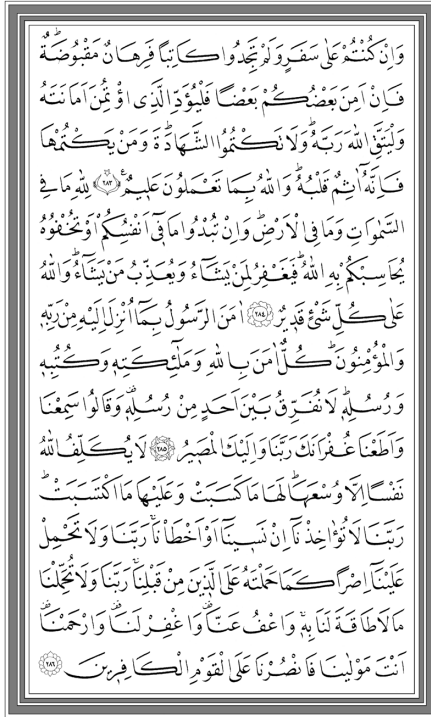 وَاِنْ كُنْتُمْ عَلٰى سَفَرٍ وَلَمْ تَجِدُوا كَاتِبًا فَرِهَانٌ مَقْبُوضَةٌۜ
فَاِنْ اَمِنَ بَعْضُكُمْ بَعْضًا فَلْيُؤَدِّ الَّذِى اؤْتُمِنَ اَمَانَتَهُ
وَلْيَتَّقِ اللّٰهَ رَبَّهُۜ وَلَا تَكْتُمُوا الشَّهَادَةَۜ وَمَنْ يَكْتُمْهَا
فَاِنَّهُٓ اٰثِمٌ قَلْبُهُۜ وَاللّٰهُ بِمَا تَعْمَلُونَ عَلِيمٌ۟ ﴿٢٨٣﴾ لِلّٰهِ مَا فِى
السَّمٰوَاتِ وَمَا فِى الْاَرْضِۜ وَاِنْ تُبْدُوا مَا فِٓى اَنْفُسِكُمْ اَوْ تُخْفُوهُ
يُحَاسِبْكُمْ بِهِ اللّٰهُۜ فَيَغْفِرُ لِمَنْ يَشَٓاءُ وَيُعَذِّبُ مَنْ يَشَٓاءُۜ وَاللّٰهُ
عَلٰى كُلِّ شَىْءٍ قَدِيرٌ ﴿٢٨٤﴾ اٰمَنَ الرَّسُولُ بِمَٓا اُنْزِلَ اِلَيْهِ مِنْ رَبِّهِ
وَالْمُؤْمِنُونَۜ كُلٌّ اٰمَنَ بِاللّٰهِ وَمَلٰٓئِكَتِهِ وَكُتُبِهِ
وَرُسُلِهِۜ لَا نُفَرِّقُ بَيْنَ اَحَدٍ مِنْ رُسُلِهِ۠ وَقَالُوا سَمِعْنَا
وَاَطَعْنَا غُفْرَانَكَ رَبَّنَا وَاِلَيْكَ الْمَصِيرُ ﴿٢٨٥﴾ لَا يُكَلِّفُ اللّٰهُ
نَفْسًا اِلَّا وُسْعَهَاۜ لَهَا مَا كَسَبَتْ وَعَلَيْهَا مَا اكْتَسَبَتْۜ
رَبَّنَا لَا تُؤَاخِذْنَٓا اِنْ نَسِينَٓا اَوْ اَخْطَأْنَاۚ رَبَّنَا وَلَا تَحْمِلْ
عَلَيْنَٓا اِصْرًا كَمَا حَمَلْتَهُ عَلَى الَّذِينَ مِنْ قَبْلِنَاۚ رَبَّنَا وَلَا تُحَمِّلْنَا
مَا لَا طَاقَةَ لَنَا بِهِۚ وَاعْفُ عَنَّا۠ وَاغْفِرْ لَنَا۠ وَارْحَمْنَا۠
اَنْتَ مَوْلٰينَا فَانْصُرْنَا عَلَى الْقَوْمِ الْكَافِرِينَ ﴿٢٨٦﴾